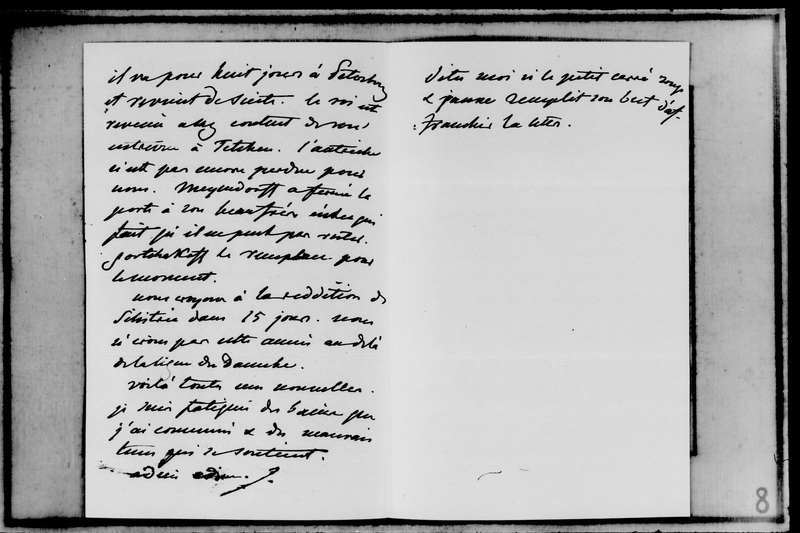 il va pour huit jours à Petersbourg
et revient de suite. le roi est
revenu assez content de son
entrevue à Tetschen. l'autriche
n'est pas encore perdue pour
nous. Meyendorff a fermé la
porte à son beau frère ce qui
fait qu'il ne peut pas rester.
gortchakoff le remplace pour
le moment.
nous croyons à la reddition de
Silistrie dans 15 jours. nous
n'irons pas cette année au delà
de la ligne du Danube.
voilà toutes mes nouvelles.
je suis fatiguée des bains que
j'ai commencé & du mauvais
tems qui se soutient.
adieu adieu. J.
dites moi si le petit carré rouge
& jaune remplit son but d'af-
franchir la lettre.
8